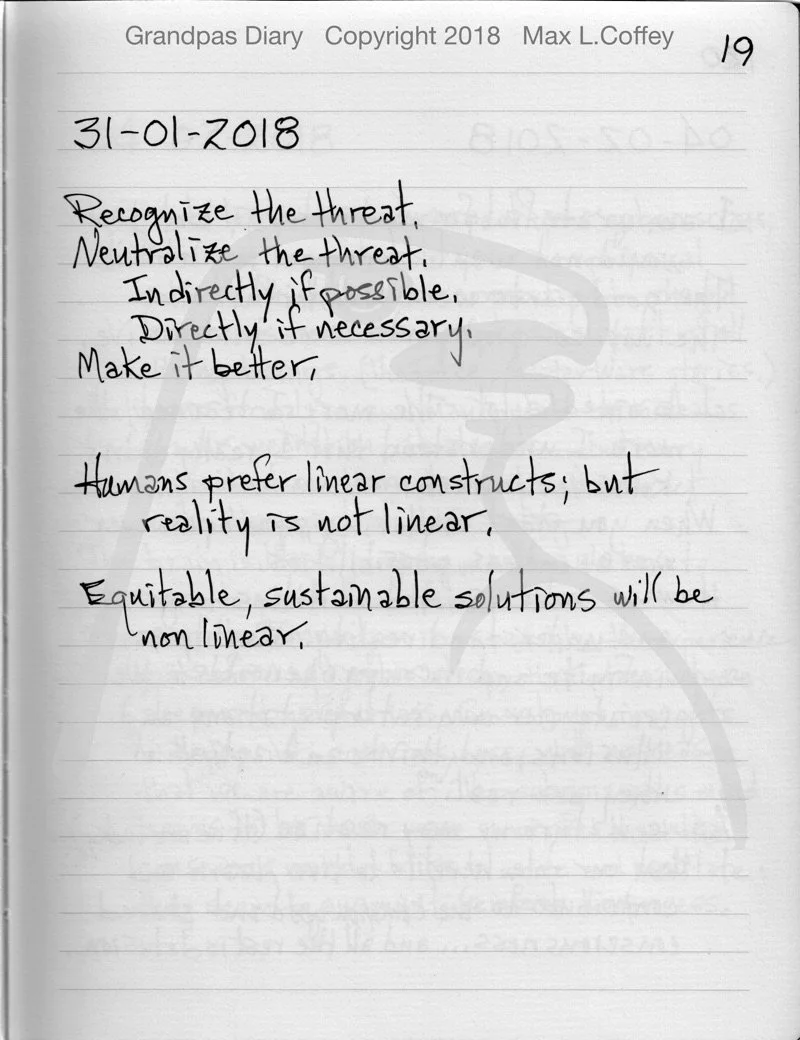 Grandpas Diary Copyright 2018 Max L.Coffey
19
31-01-2018
Recognize the threat.
Neutralize the threat.
Indirectly if possible.
Directly if necessary.
Make it better.
Humans prefer linear constructs; but
reality is not linear.
Equitable, sustainable solutions will be
nonlinear.